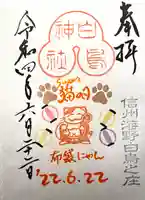 奉拝
白鳥神社
令和四年六月二十二日
猫の日
布袋にゃん
'22.6.22
信州海野白鳥之庄